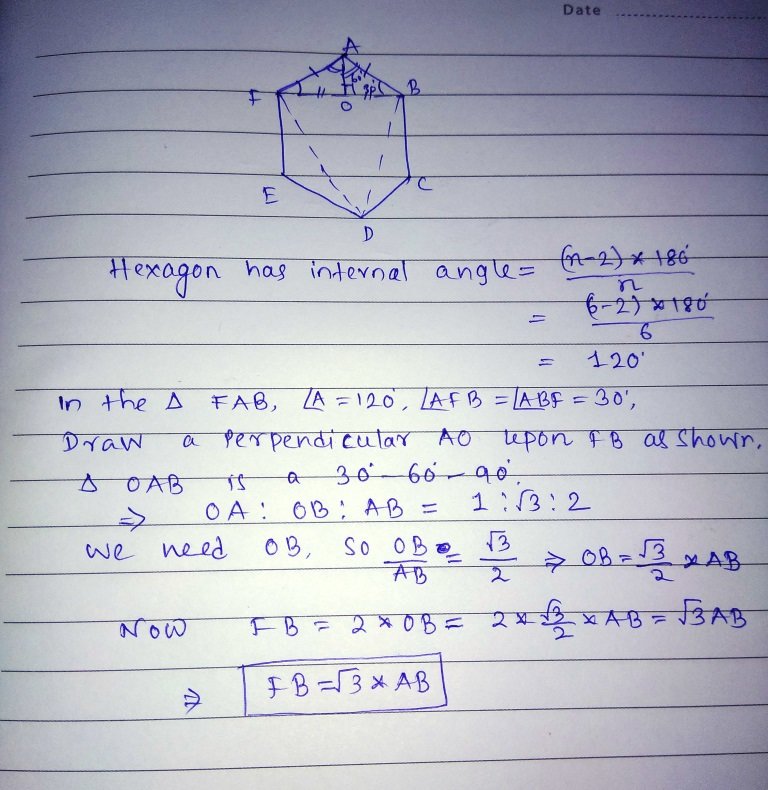 Date
A
F
60°
30°
B
O
E
C
D
Hexagon has internal angle = (n-2) * 180°
n
= (6-2) * 180°
6
= 120°
In the Δ FAB, ∠A = 120°, ∠AFB = ∠ABF = 30°,
Draw a perpendicular AO upon FB as shown.
Δ OAB is a 30° - 60° - 90°.
⇒ OA : OB : AB = 1 : √3 : 2
We need OB, so OB/AB = √3/2 ⇒ OB = √3/2 * AB
Now FB = 2 * OB = 2 * √3/2 * AB = √3 AB
⇒ FB = √3 * AB